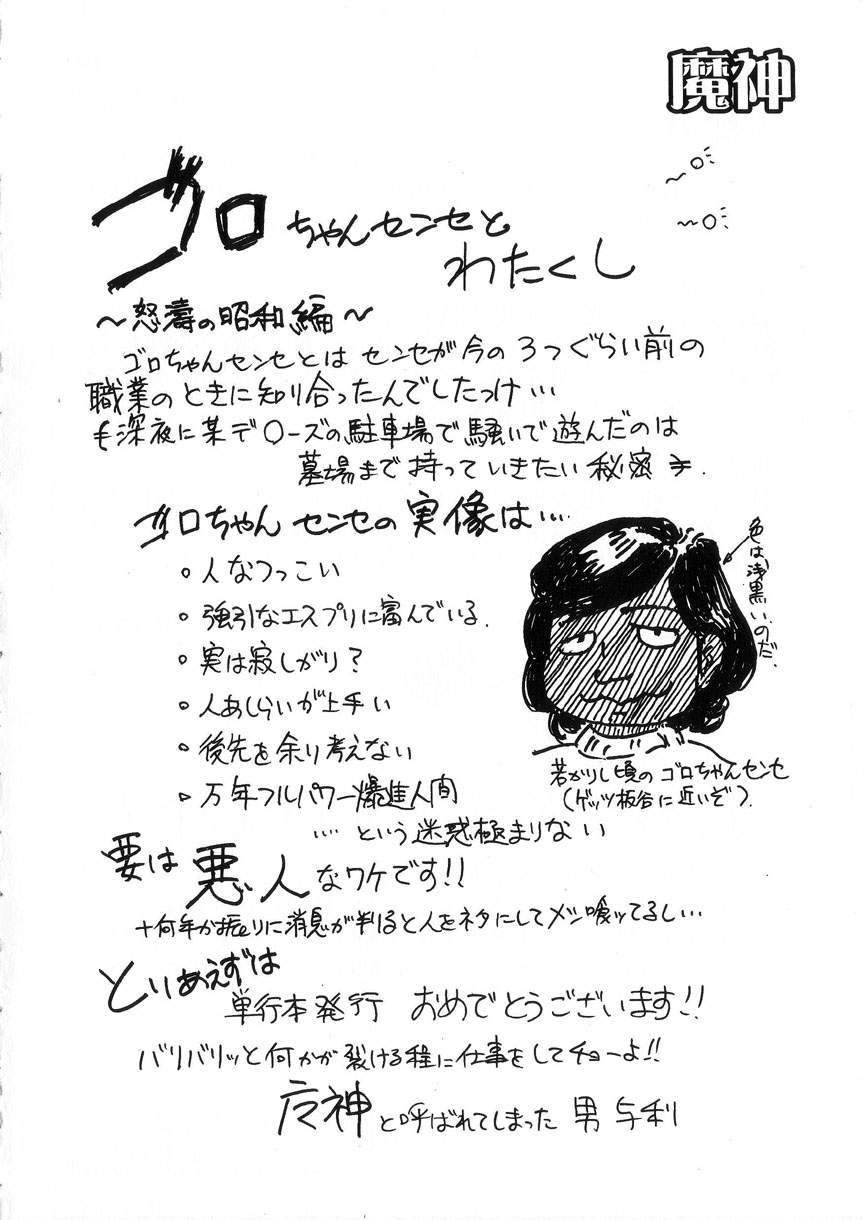 魔神
ゴロちゃんセンセと
わたくし
～怒濤の昭和編～
ゴロちゃんセンセとは センセが今の3つぐらい前の
職業のときに知り合ったんでしたっけ…
深夜に某デ〇ーズの駐車場で騒いで遊んだのは
墓場まで持っていきたい秘密
ゴロちゃんセンセの実像は…
◦人なつっこい
◦強引なエスプリに富んでいる.
◦実は寂しがり?
◦人あしらいが上手い
◦後先を余り考えない
▹万年フルパワー爆進人間
…という迷惑極まりない
色は浅黒いのだ.
若かりし頃のゴロちゃんセンセ
(ゲッツ板谷に近いぞ).
要は悪人なワケです!!
十何年か振りに消息が判ると人をネタにしてメシ喰ッてるし…
とりあえずは
単行本発行 おめでとうございます!!
バリバリッと何かが裂ける程に仕事をしてチョーよ!!
神と呼ばれてしまった男 与利